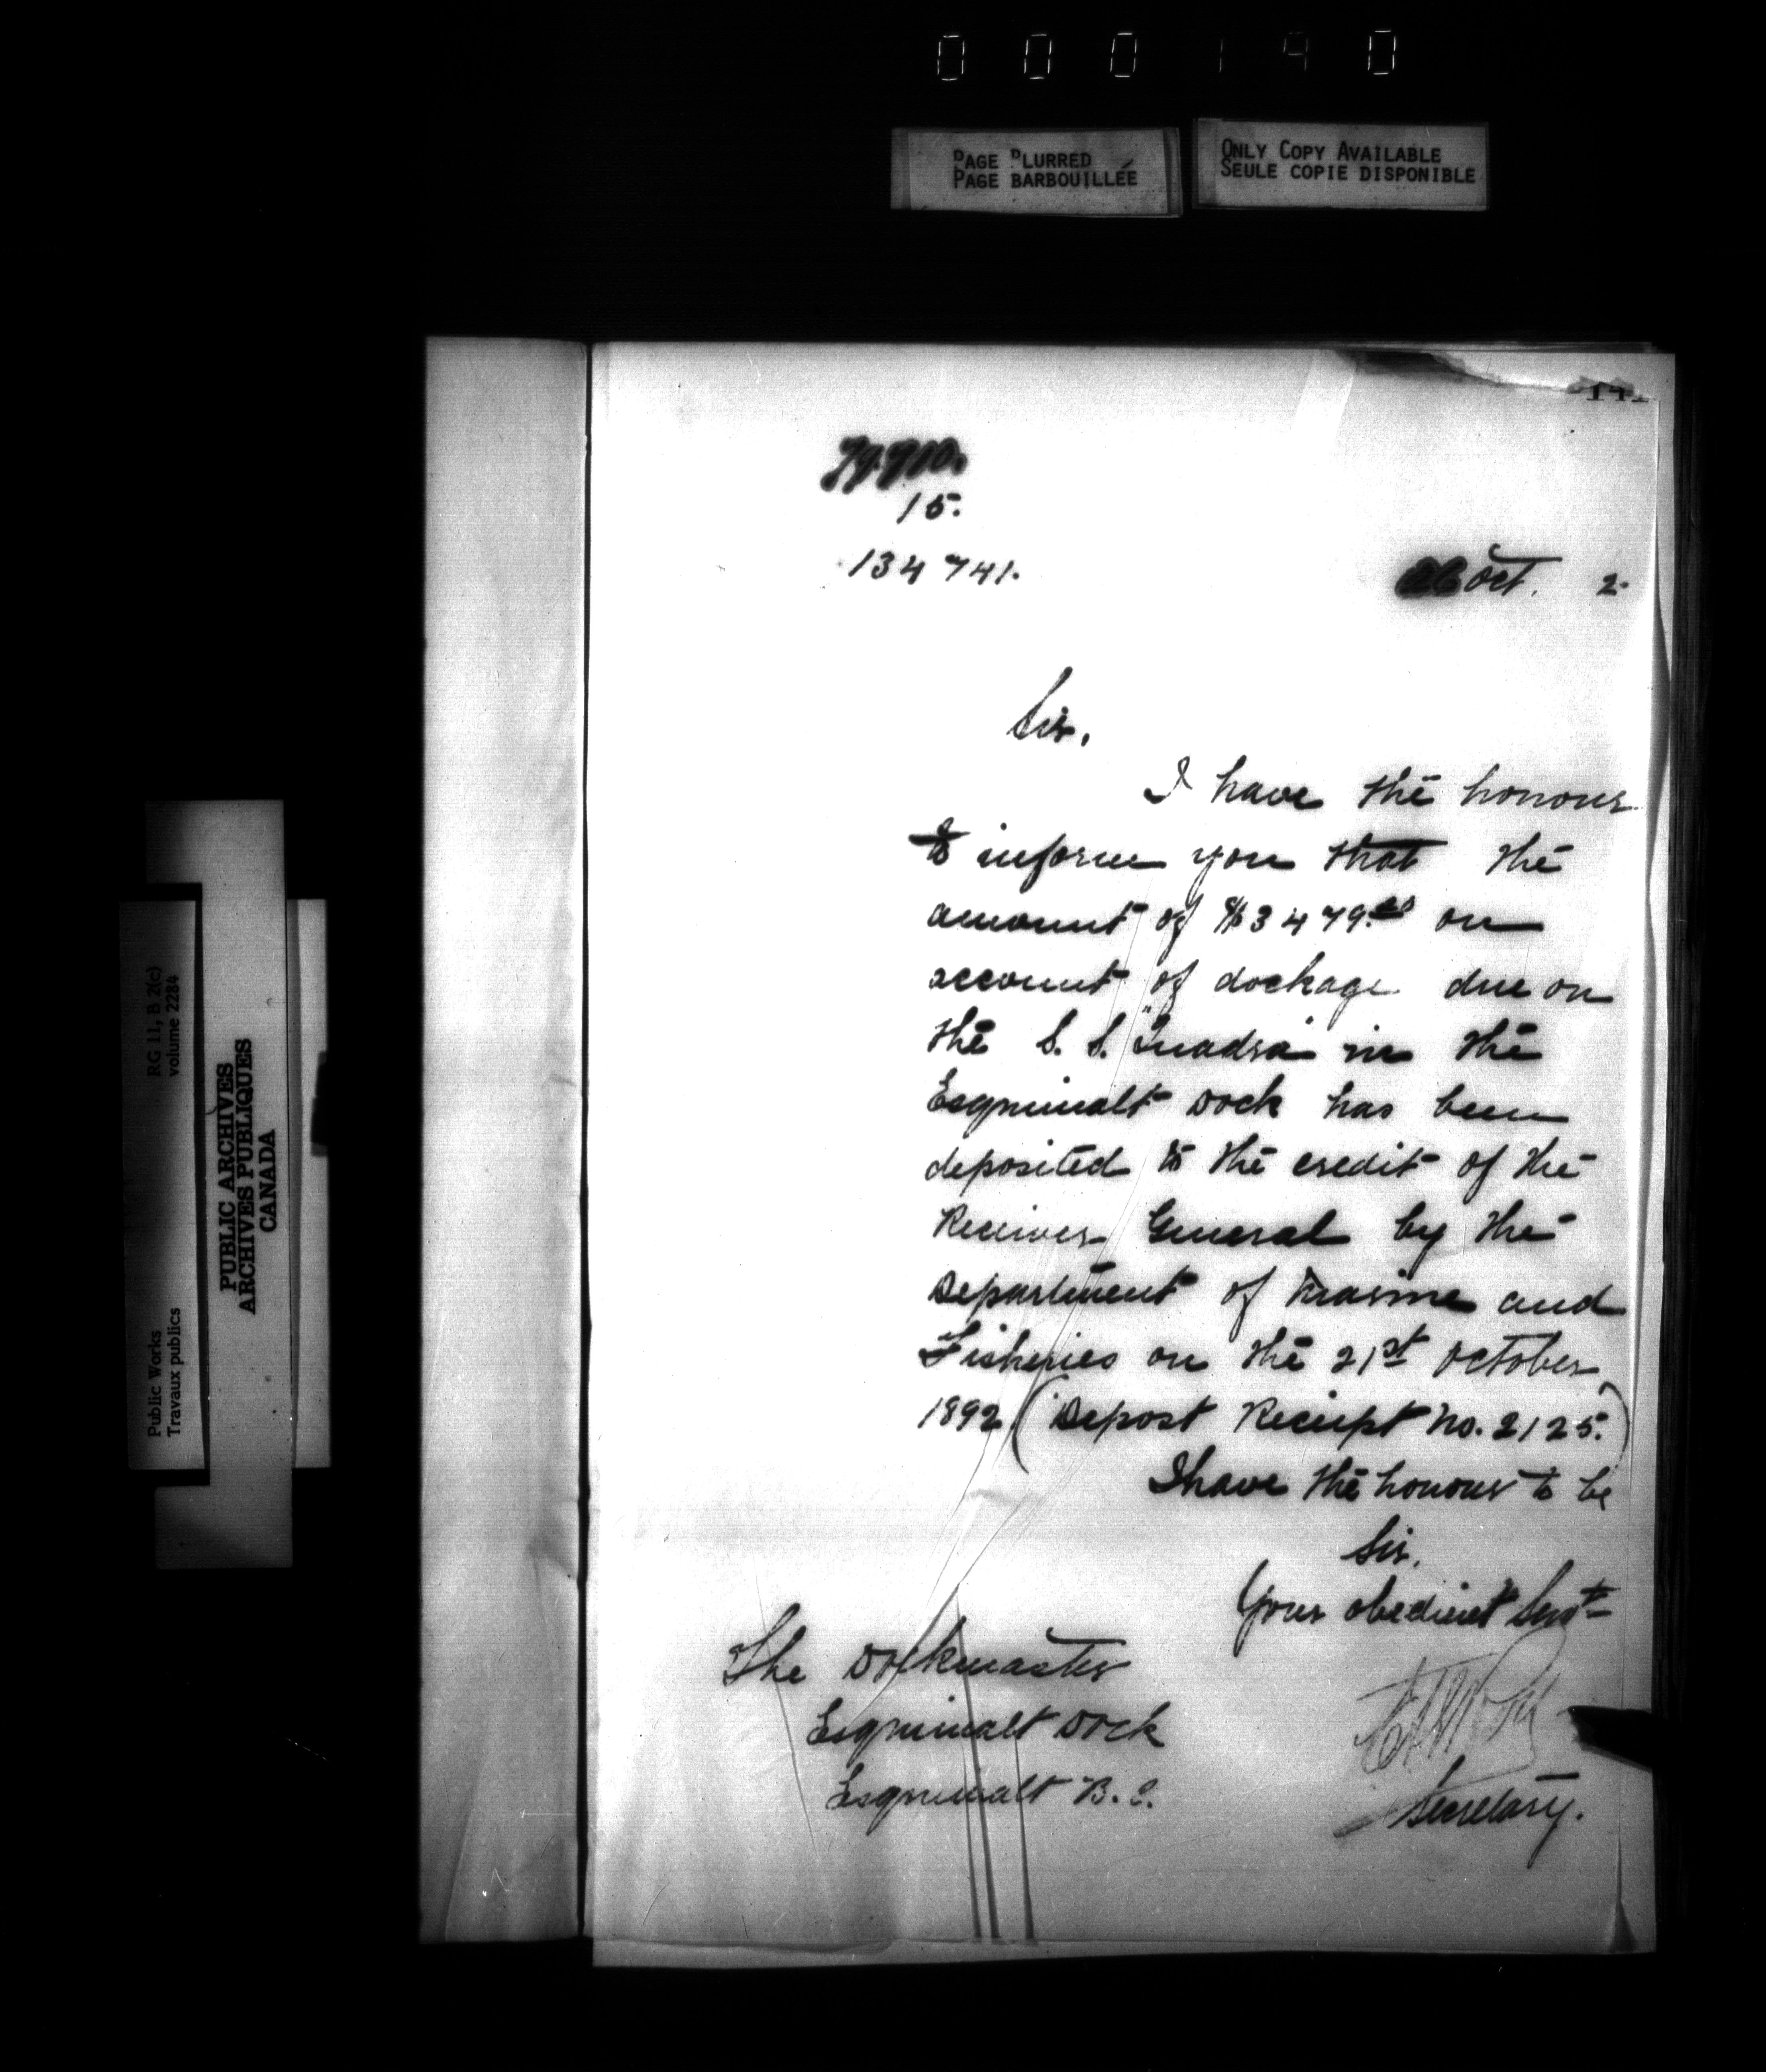 000190
PAGE BLURRED
PAGE BARBOUILLÉE
ONLY COPY AVAILABLE
SEULE COPIE DISPONIBLE
15.
134741.
26 Oct. 2
Sir,
I have the honour
to inform you that the
amount of $3479. on
account of dockage due on
the S. S. "Quadra" in the
Esquimalt Dock has been
deposited to the credit of the
Receiver General by the
Department of Marine and
Fisheries on the 21st October
1892 (Depost Receipt No. 2125.)
I have the honour to be
Sir,
Your obedient Servt
The Dockmaster
Esquimalt Dock
Esquimalt B.C.
Secretary.
RG 11, B 2(c)
volume 2284
Public Works
Travaux publics
PUBLIC ARCHIVES
ARCHIVES PUBLIQUES
CANADA